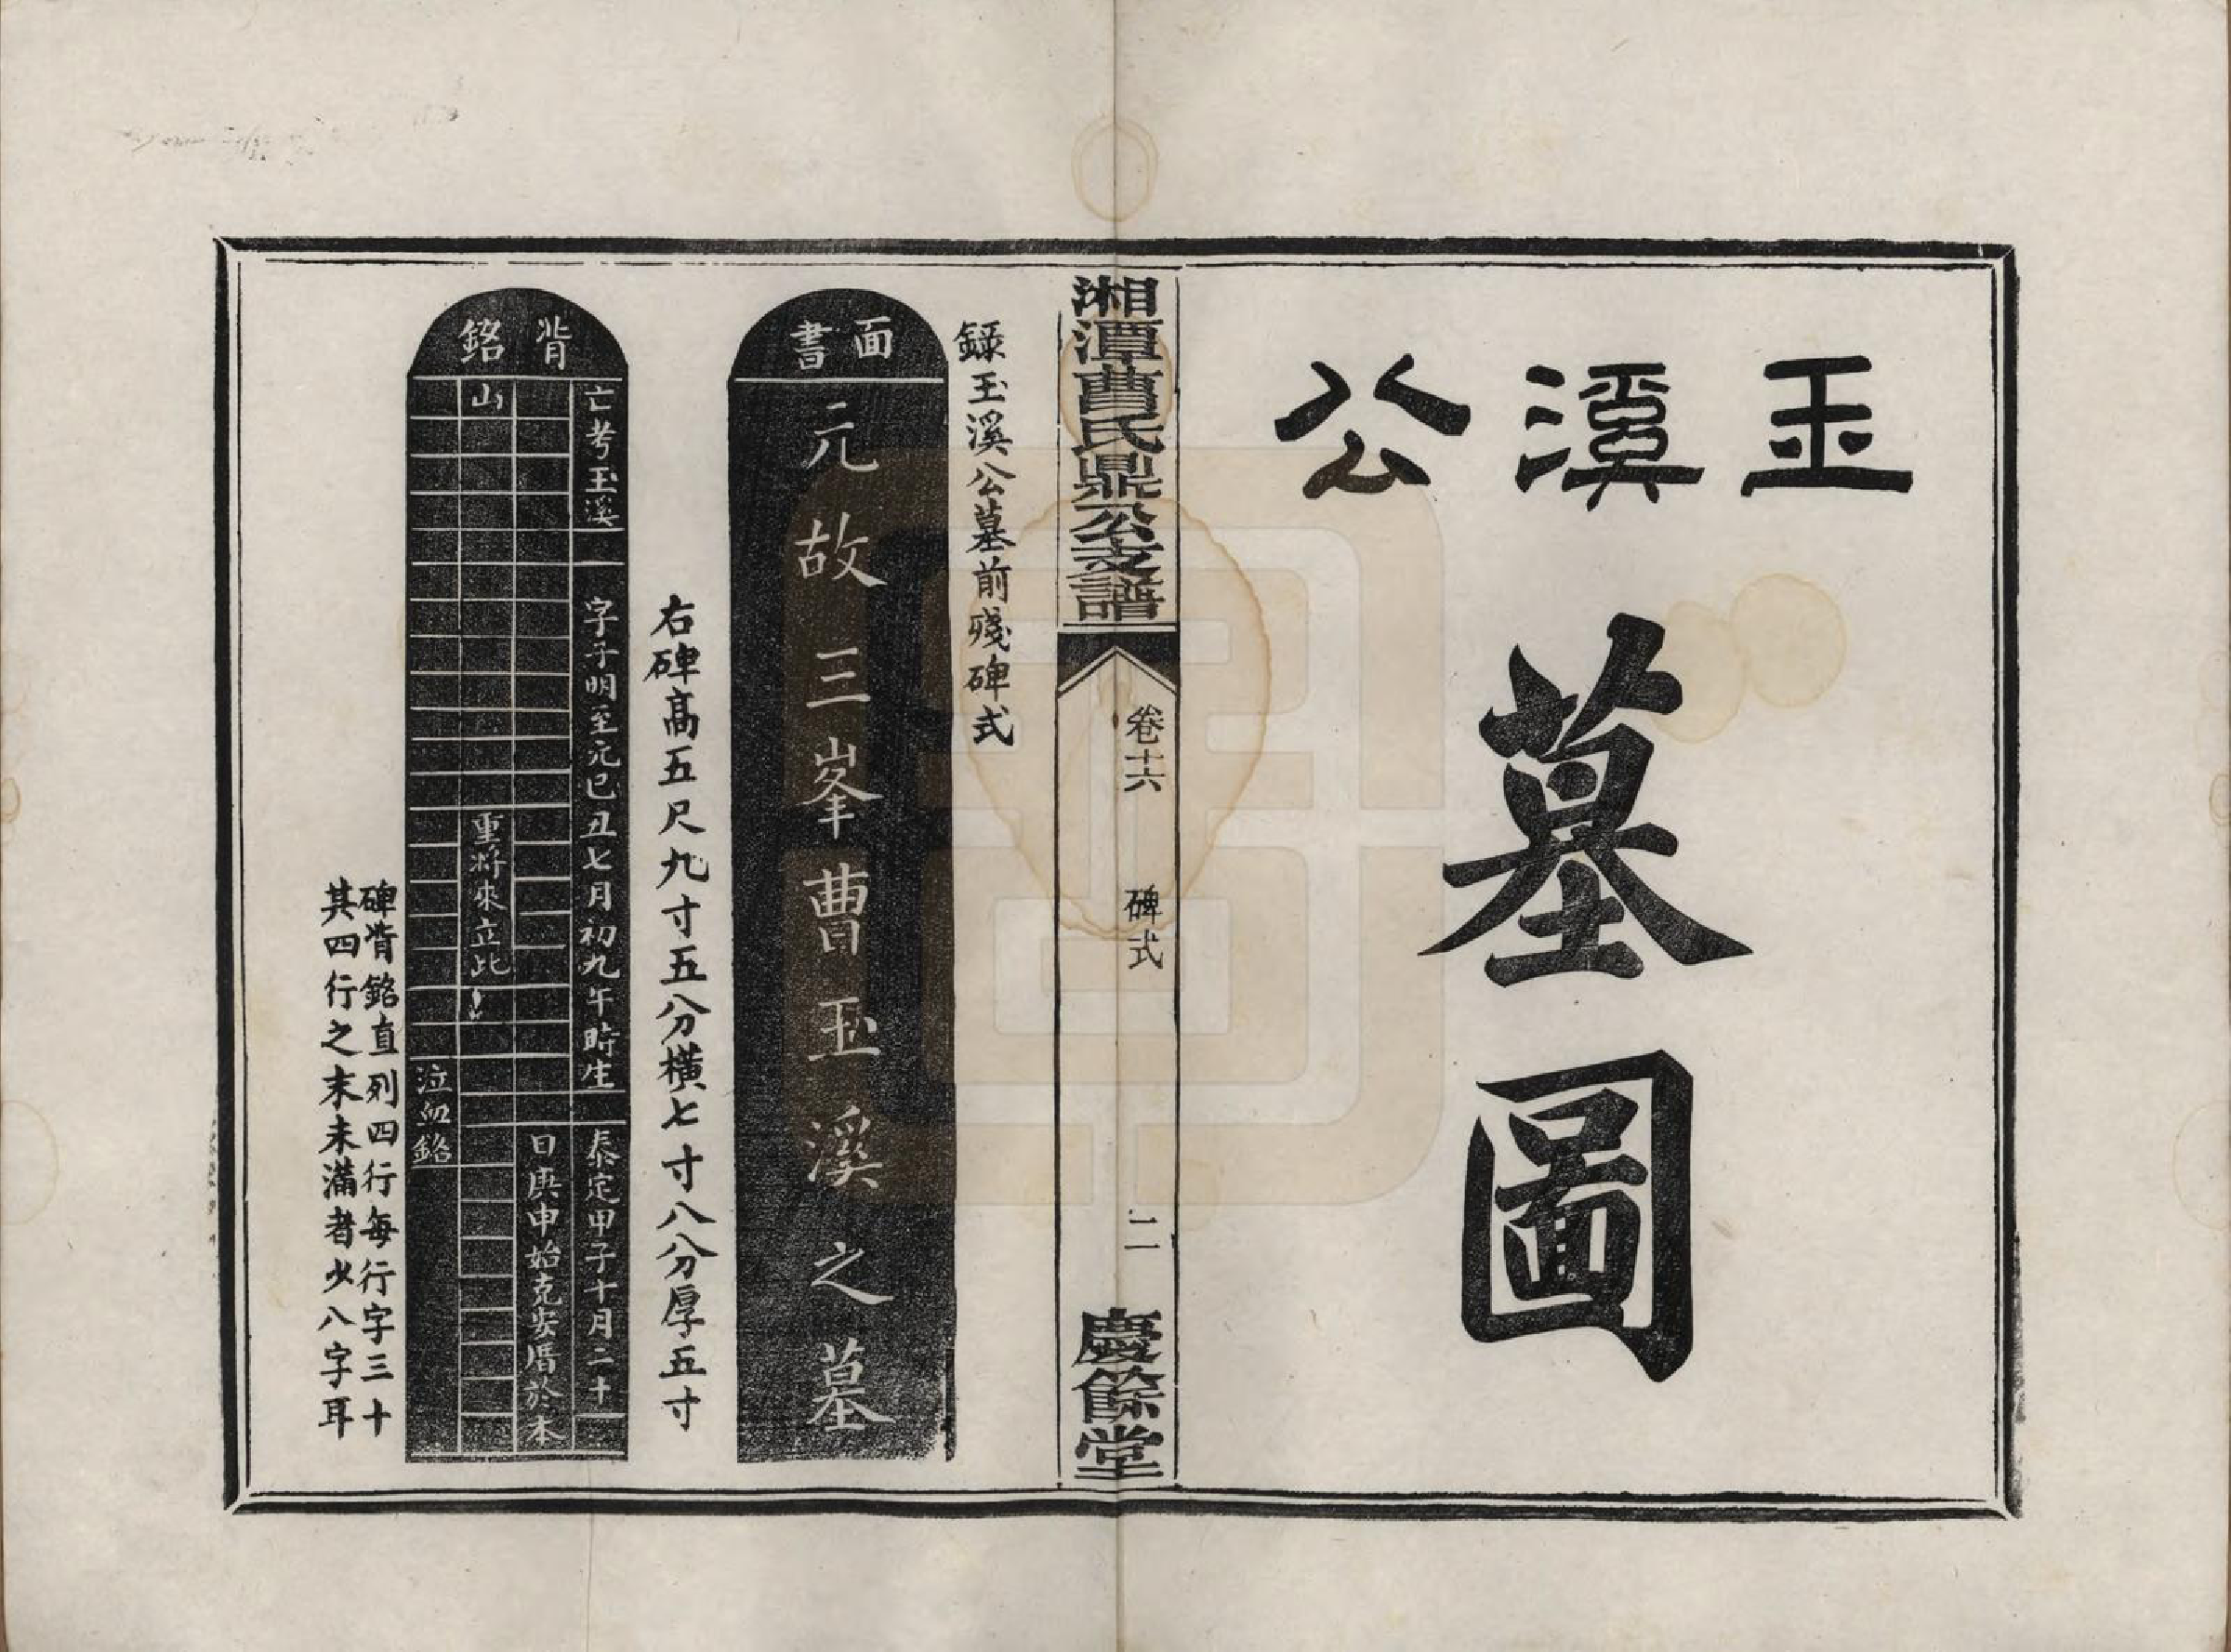 玉溪公
墓圖
湘潭曹氏鼎公支譜
卷十六
碑式
二
慶餘堂
錄玉溪公墓前殘碑式
面書
元故三峯曹玉溪之墓
右碑高五尺九寸五分橫七寸八分厚五寸
背銘
亡考玉溪
字子明至元己丑七月初九午時生
泰定甲子十月二十
日庚申始克安厝於本
山
重將來立此
泣血銘
碑背銘直列四行每行字三十
其四行之末未滿者少八字耳